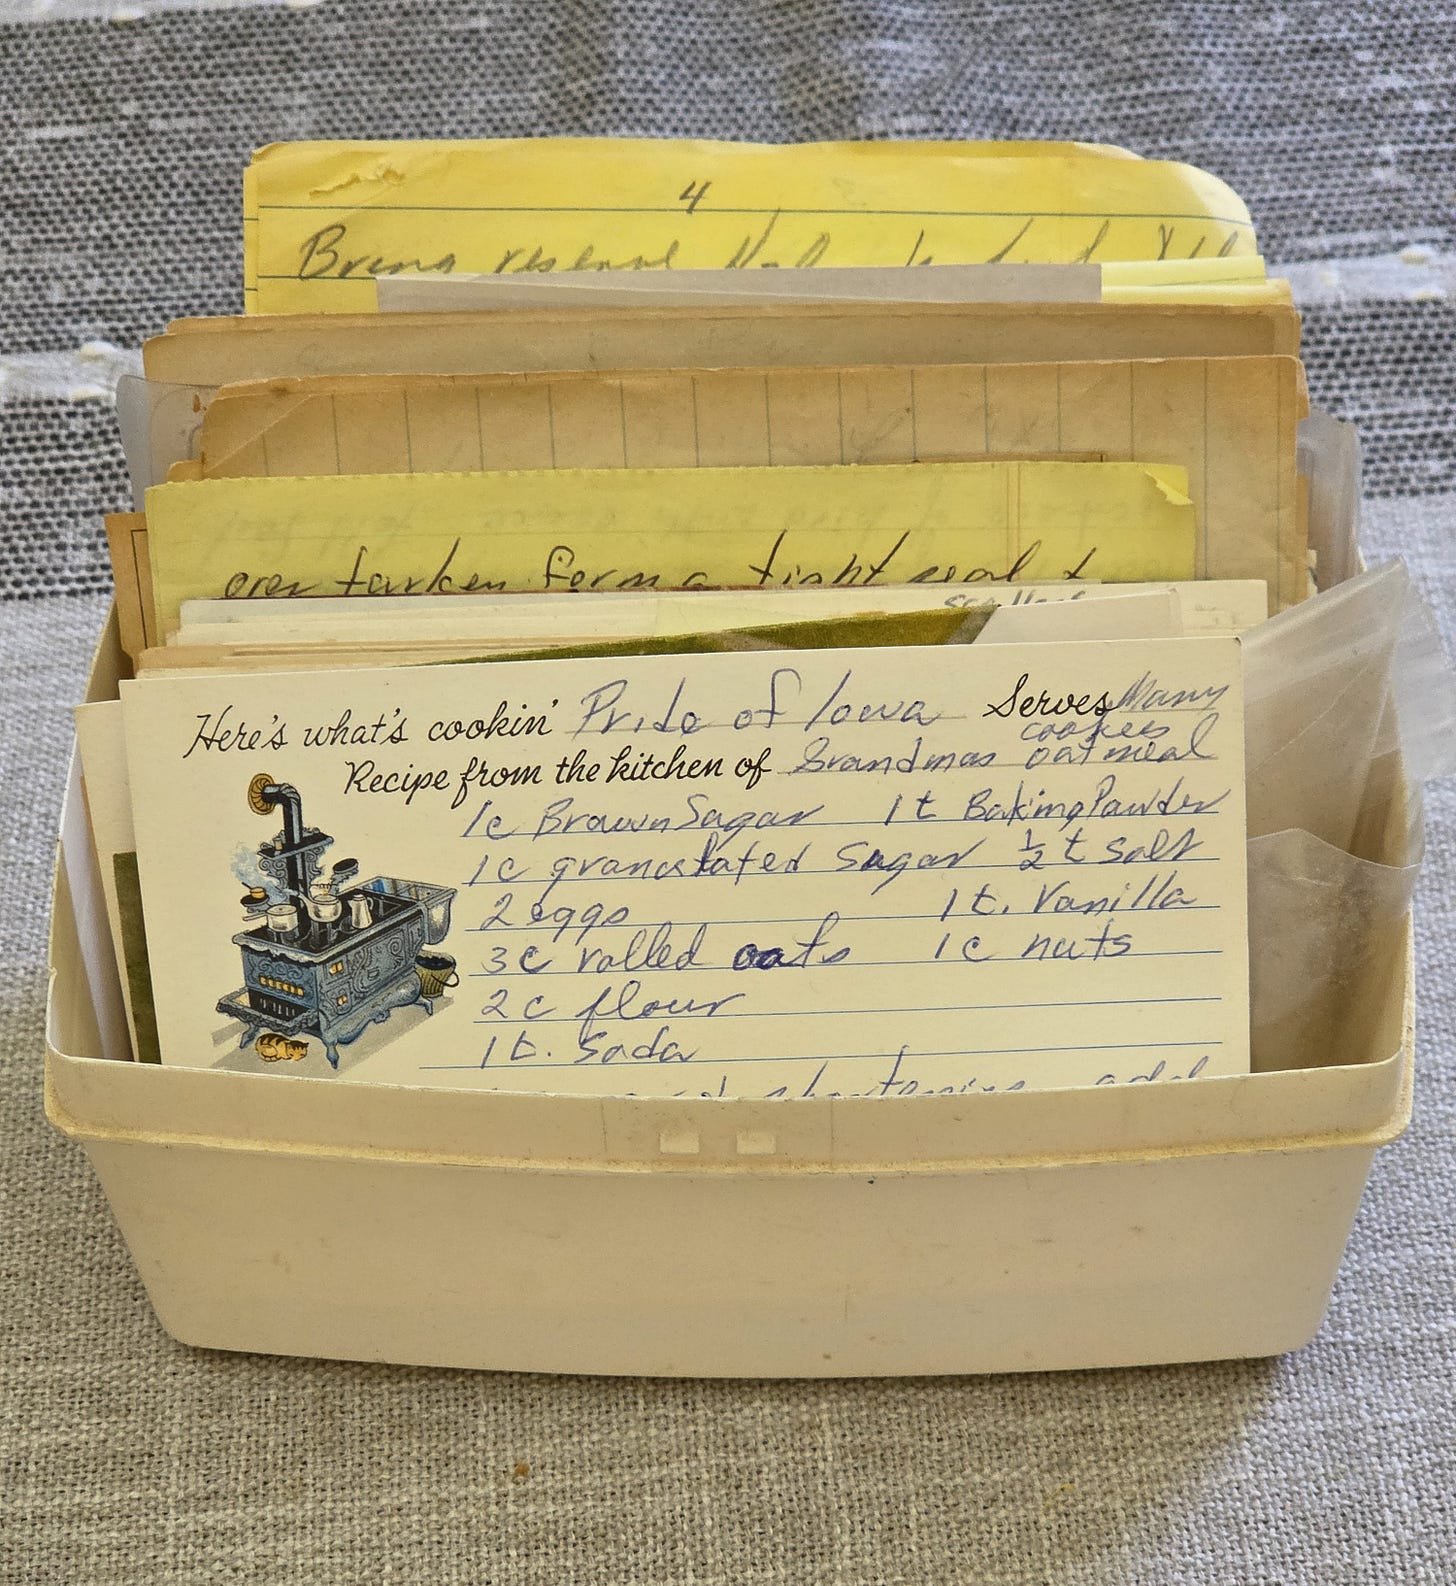 4
Bring
over turken form a tight seal &
Here's what's cookin' Pride of Iowa Serves Many
cookies
Recipe from the kitchen of Grandmas oatmeal
1c Brown Sugar 1 t Baking Powder
1c granulated Sugar ½ t Salt
2 eggs 1 t. Vanilla
3c rolled oats 1c nuts
2c flour
1 t. Soda
shortening add